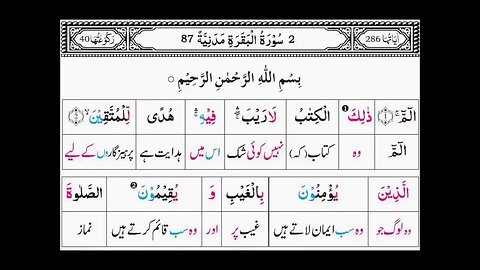 اٰيَاتُهَا 286 2 سُوْرَةُ الْبَقَرَةِ مَدَنِيَّةٌ 87 رُكُوْعَاتُهَا 40
بِسْمِ اللّٰهِ الرَّحْمٰنِ الرَّحِيْمِ ○
الٓمّٓ ۚ ① ذٰلِكَ ❶ الْكِتٰبُ لَا رَيْبَ ۛۖ فِيْهِ ۛۚ هُدًى لِّلْمُتَّقِيْنَ ۙ ②
الٓمّٓ وہ کتاب (کہ) نہیں کوئی شک اس میں ہدایت ہے پرہیزگاروں کے لیے
الَّذِيْنَ يُؤْمِنُوْنَ بِالْغَيْبِ وَ يُقِيْمُوْنَ ❷ الصَّلٰوةَ
وہ لوگ جو وہ سب ایمان لاتے ہیں غیب پر اور وہ سب قائم کرتے ہیں نماز